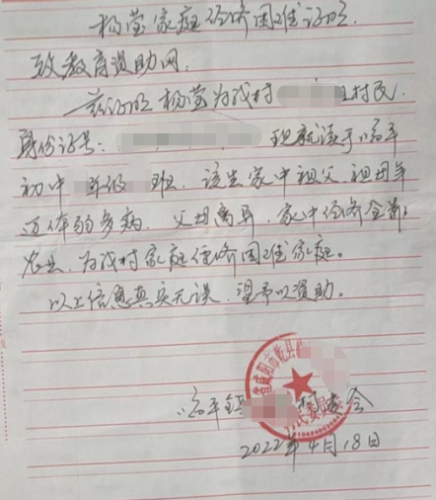 杨莹家庭经济困难证明
致教育资助网:
兹证明杨莹为我村 村民,
身份证号: 现就读于临平
初中 年级 班。该生家中祖父、祖母年
迈体弱多病,父母离异,家中经济全靠
农业,为我村家庭经济困难家庭。
以上信息真实无误,望予以资助。
临平镇 村委会
2022年4月18日
省咸阳市乾县临
村民委员会